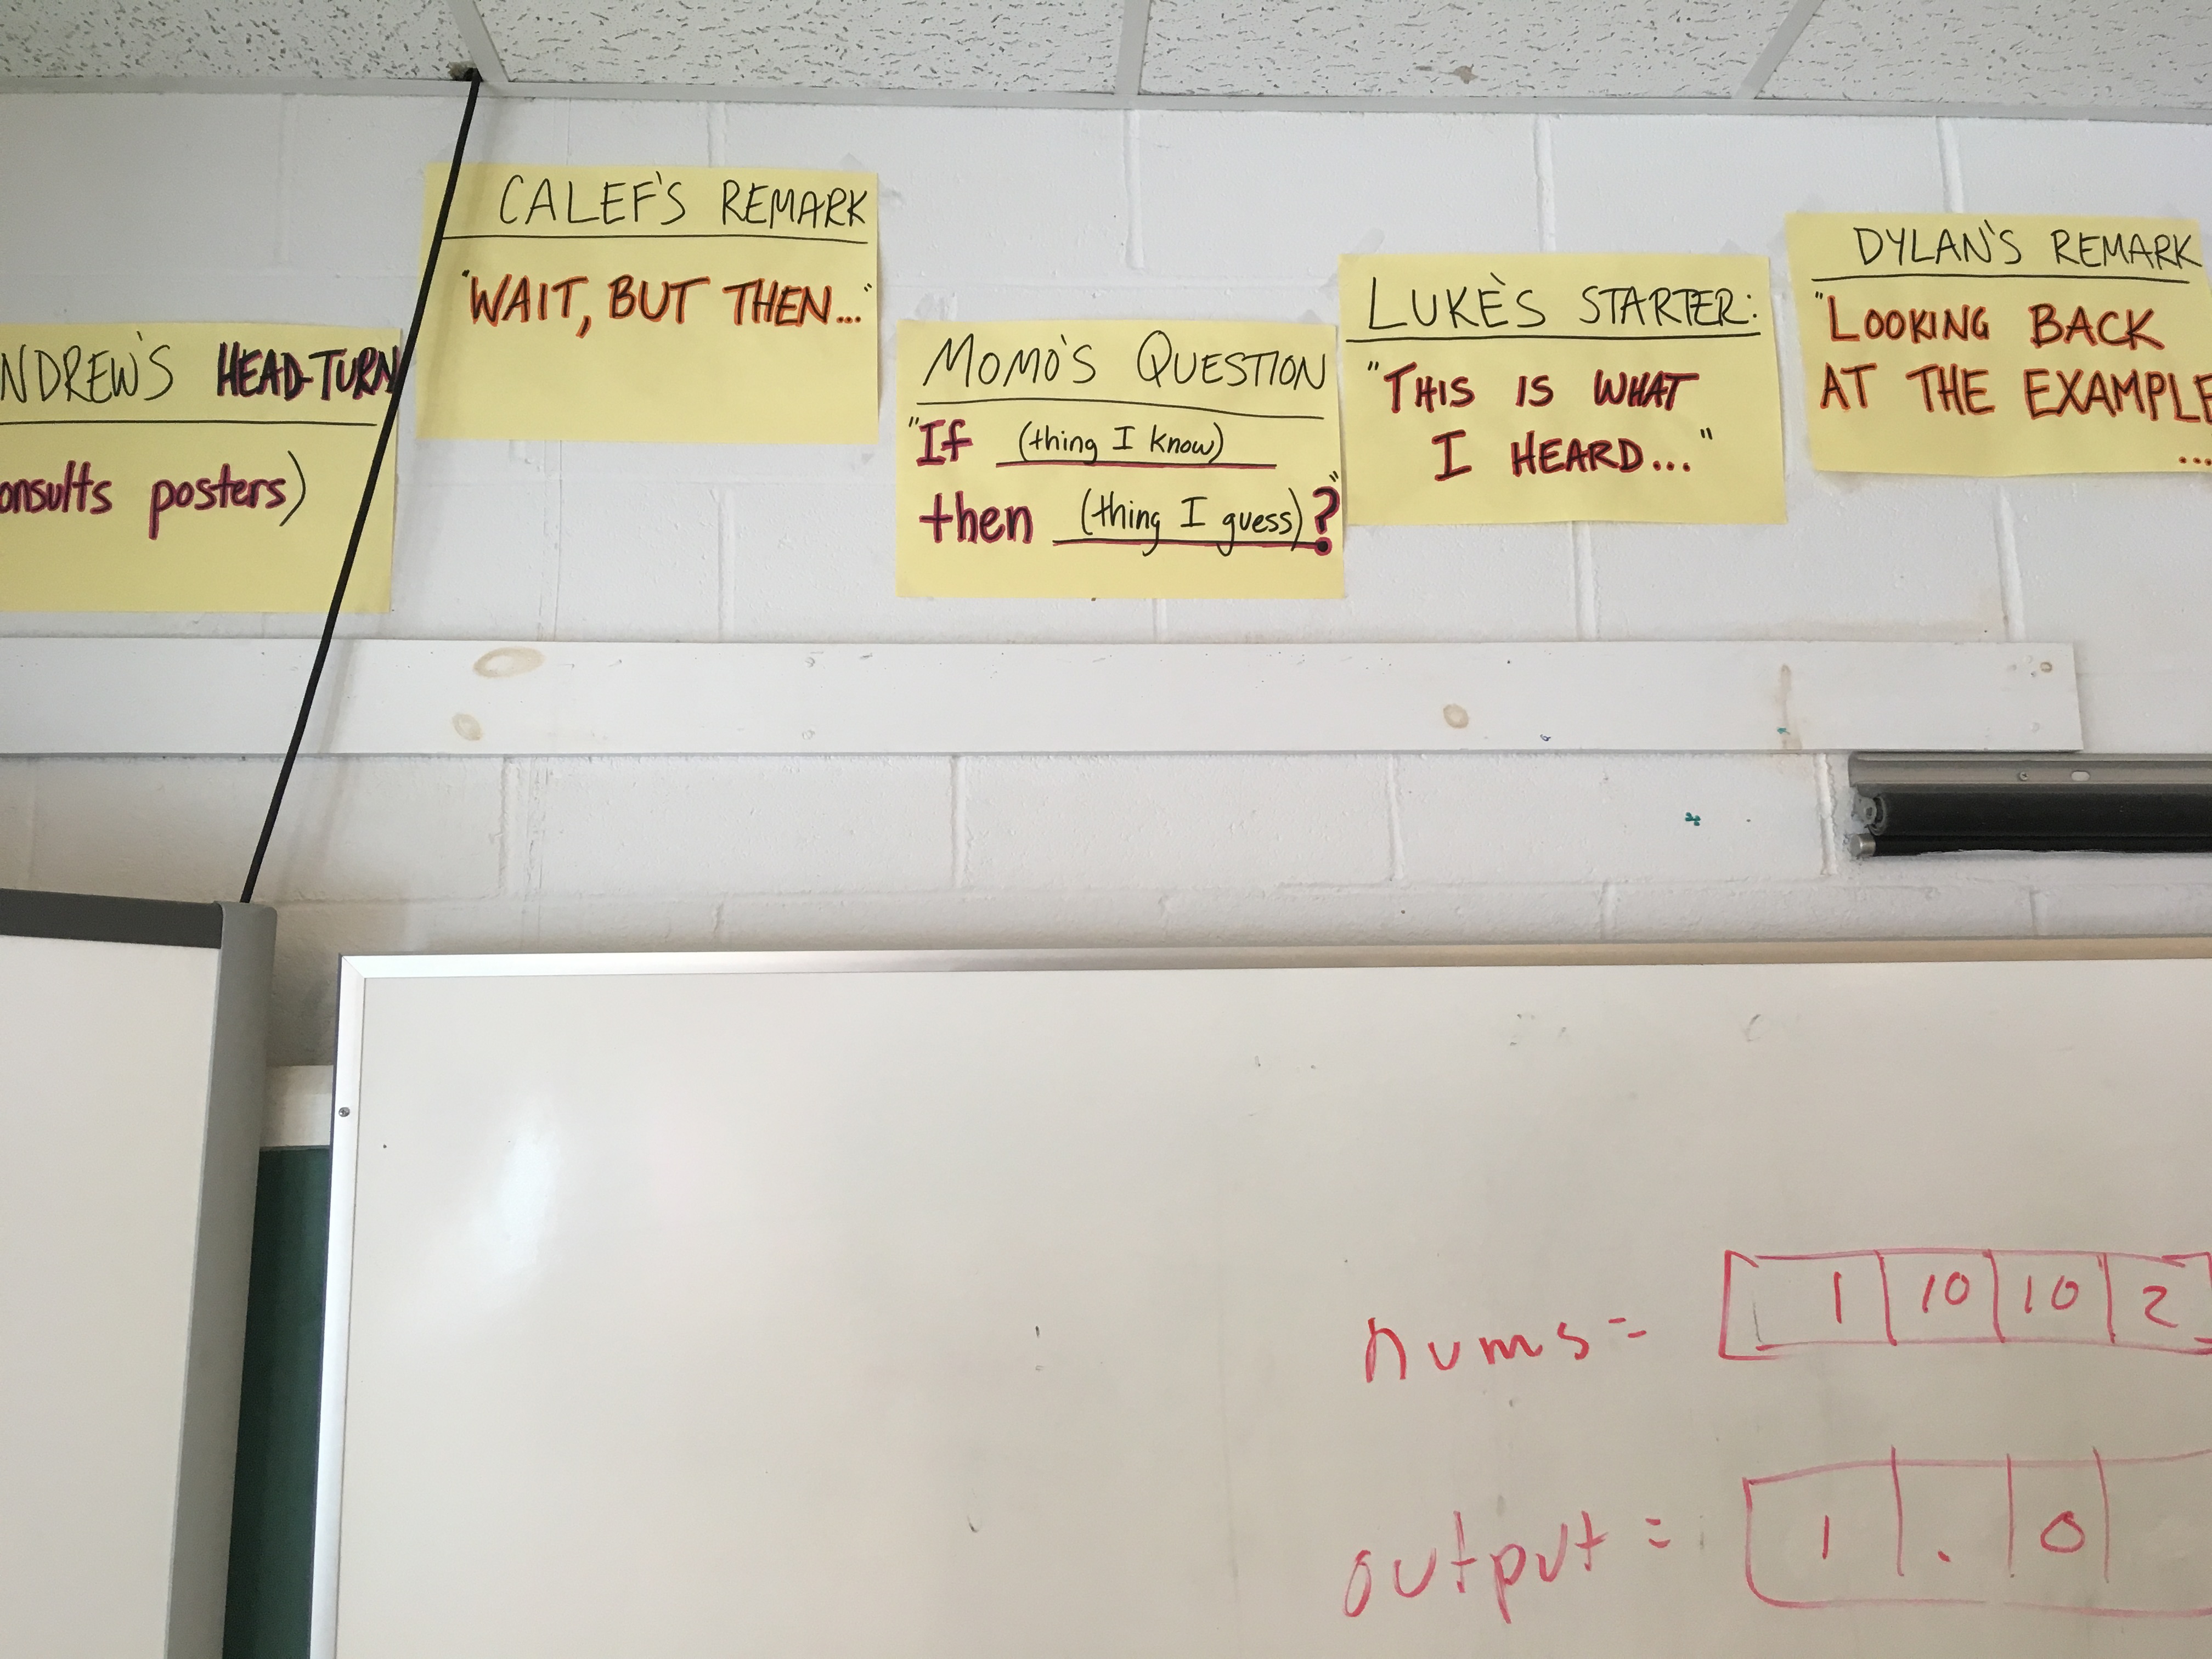 NDREW'S HEAD-TURN
onsults posters)
CALEF'S REMARK
"WAIT, BUT THEN..."
MOMO'S QUESTION
"If (thing I know)
then (thing I guess)?"
LUKE'S STARTER:
"THIS IS WHAT
I HEARD..."
DYLAN'S REMARK
"LOOKING BACK
AT THE EXAMPLE
...
nums = [ 1 | 10 | 10 | 2
output = 1 | . | 0 |